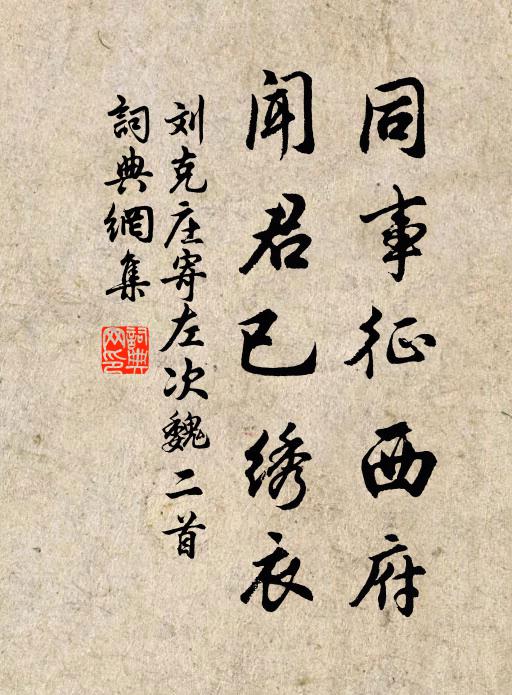 同事征西府
闻君已绣衣
刘克庄寄左次魏二首
詞典網集
詞典网印